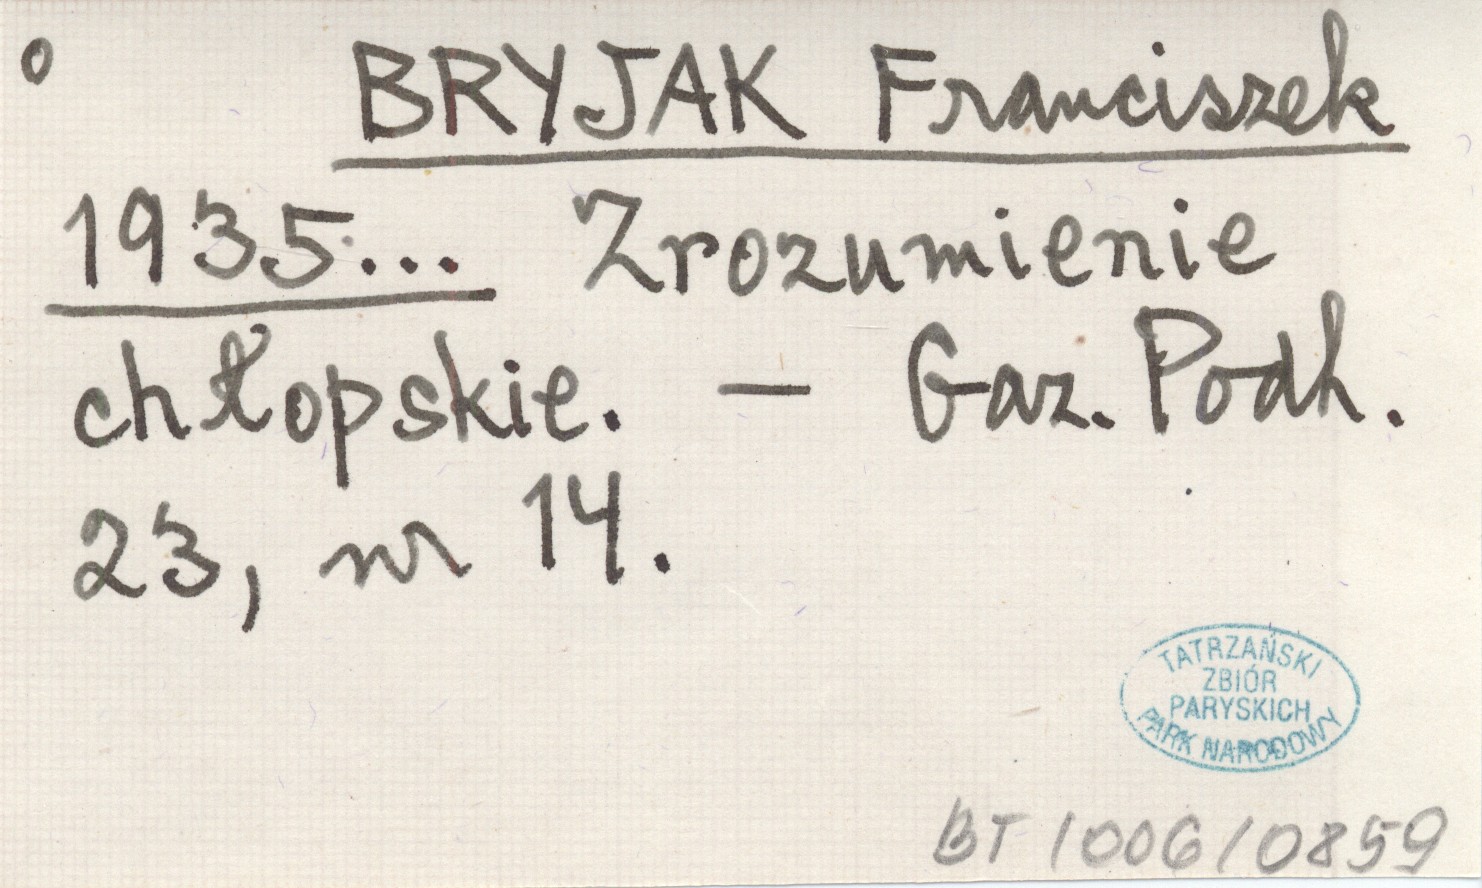 o BRYJAK Franciszek
1935... Zrozumienie
chłopskie. — Gaz. Podh.
23, nr 14.
TATRZAŃSKI
ZBIÓR
PARYSKICH
PARK NARODOWY
BT 1006/0859